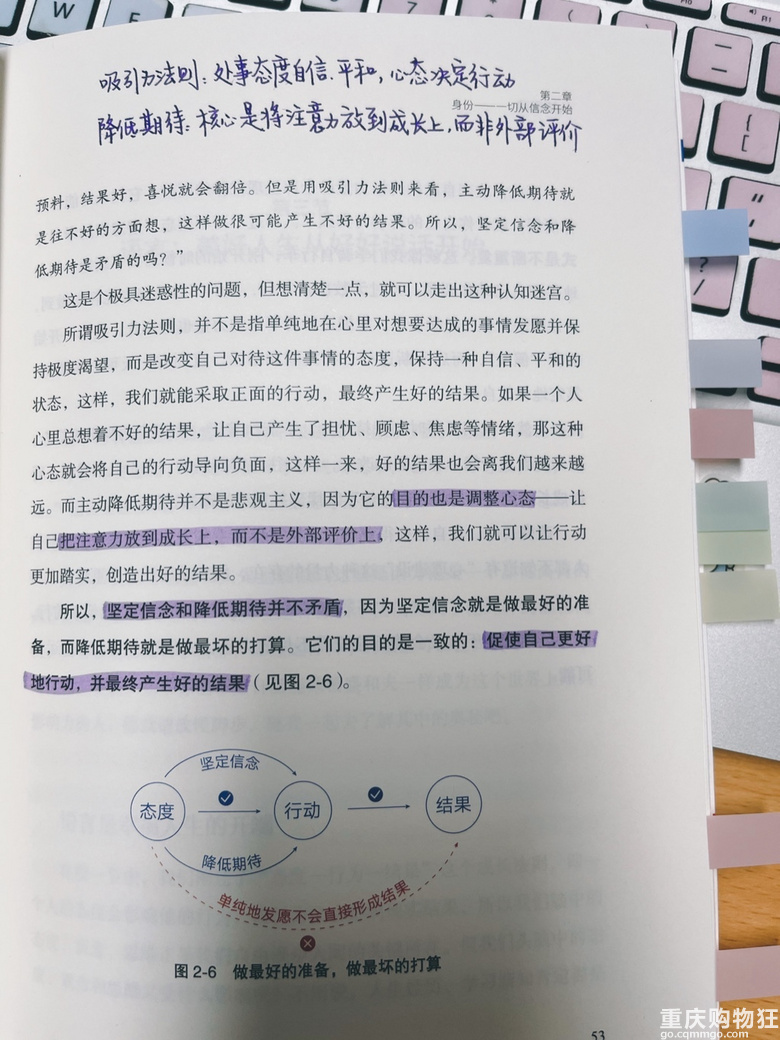 W
E
吸引力法则：处事态度自信、平和，心态决定行动
第二章
身份——一切从信念开始
降低期待：核心是将注意力放到成长上，而非外部评价
预料，结果好，喜悦就会翻倍。但是用吸引力法则来看，主动降低期待就
是往不好的方面想，这样做很可能产生不好的结果。所以，坚定信念和降
低期待是矛盾的吗？”
这是个极具迷惑性的问题，但想清楚一点，就可以走出这种认知迷宫。
所谓吸引力法则，并不是指单纯地在心里对想要达成的事情发愿并保
持极度渴望，而是改变自己对待这件事情的态度，保持一种自信、平和的
状态，这样，我们就能采取正面的行动，最终产生好的结果。如果一个人
心里总想着不好的结果，让自己产生了担忧、顾虑、焦虑等情绪，那这种
心态就会将自己的行动导向负面，这样一来，好的结果也会离我们越来越
远。而主动降低期待并不是悲观主义，因为它的目的也是调整心态——让
自己把注意力放到成长上，而不是外部评价上，这样，我们就可以让行动
更加踏实，创造出好的结果。
所以，坚定信念和降低期待并不矛盾，因为坚定信念就是做最好的准
备，而降低期待就是做最坏的打算。它们的目的是一致的：促使自己更好
地行动，并最终产生好的结果（见图 2-6）。
坚定信念
态度
行动
结果
降低期待
单纯地发愿不会直接形成结果
图 2-6 做最好的准备，做最坏的打算
53
重庆购物狂
go.cqmmgo.com